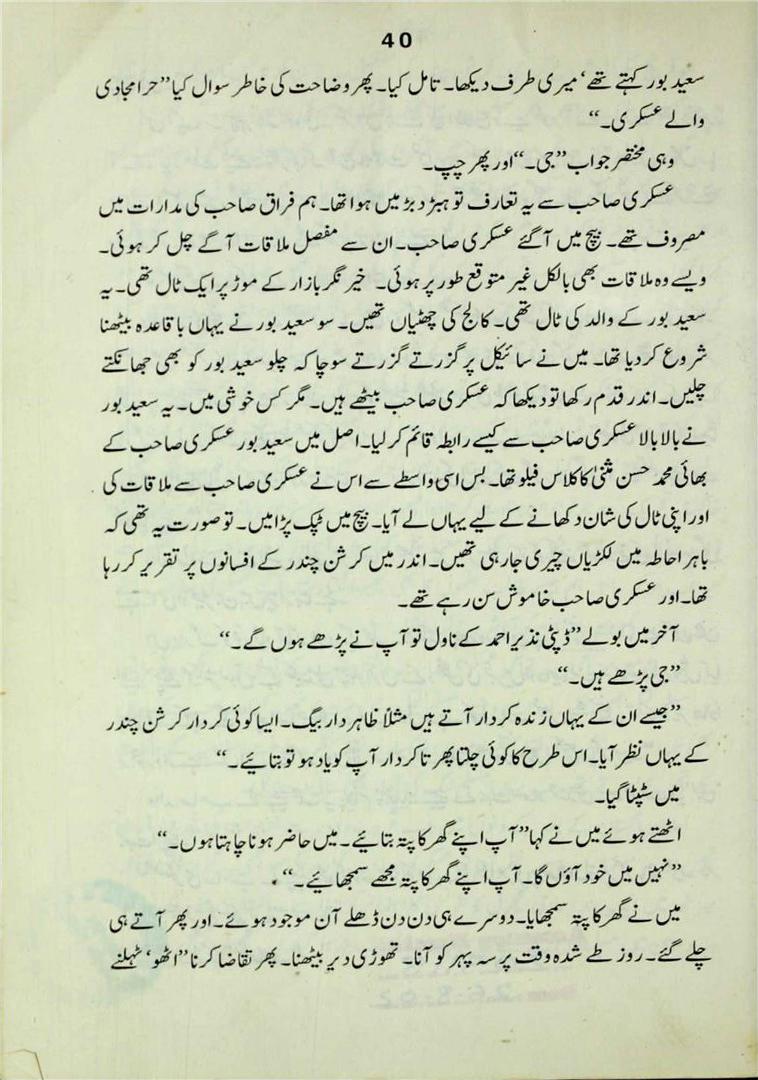 40
سعید بور کہتے تھے‘ میری طرف دیکھا۔ تامل کیا۔ پھر وضاحت کی خاطر سوال کیا ’’حرامجادی
والے عسکری۔‘‘
وہی مختصر جواب ’’جی۔‘‘ اور پھر چپ۔
عسکری صاحب سے یہ تعارف تو ہبڑ دبڑ میں ہوا تھا۔ ہم فراق صاحب کی مدارات میں
مصروف تھے۔ بیچ میں آ گئے عسکری صاحب۔ ان سے مفصل ملاقات آگے چل کر ہوئی۔
ویسے وہ ملاقات بھی بالکل غیر متوقع طور پر ہوئی۔ خیر نگر بازار کے موڑ پر ایک ٹال تھی۔ یہ
سعید بور کے والد کی ٹال تھی۔ کالج کی چھٹیاں تھیں۔ سو سعید بور نے یہاں باقاعدہ بیٹھنا
شروع کر دیا تھا۔ میں نے سائیکل پر گزرتے گزرتے سوچا کہ چلو سعید بور کو بھی جھانکتے
چلیں۔ اندر قدم رکھا تو دیکھا کہ عسکری صاحب بیٹھے ہیں۔ مگر کس خوشی میں۔ یہ سعید بور
نے بالا بالا عسکری صاحب سے کیسے رابطہ قائم کر لیا۔ اصل میں سعید بور عسکری صاحب کے
بھائی محمد حسن مثنیٰ کا کلاس فیلو تھا۔ بس اسی واسطے سے اس نے عسکری صاحب سے ملاقات کی
اور اپنی ٹال کی شان دکھانے کے لیے یہاں لے آیا۔ بیچ میں ٹپک پڑا میں۔ تو صورت یہ تھی کہ
باہر احاطہ میں لکڑیاں چیری جا رہی تھیں۔ اندر میں کرشن چندر کے افسانوں پر تقریر کر رہا
تھا۔ اور عسکری صاحب خاموش سن رہے تھے۔
آخر میں بولے ’’ڈپٹی نذیر احمد کے ناول تو آپ نے پڑھے ہوں گے۔‘‘
’’جی پڑھے ہیں۔‘‘
’’جیسے ان کے یہاں زندہ کردار آتے ہیں مثلاً ظاہر دار بیگ۔ ایسا کوئی کردار کرشن چندر
کے یہاں نظر آیا۔ اس طرح کا کوئی چلتا پھرتا کردار آپ کو یاد ہو تو بتائیے۔‘‘
میں سٹپٹا گیا۔
اٹھتے ہوئے میں نے کہا ’’آپ اپنے گھر کا پتہ بتائیے۔ میں حاضر ہونا چاہتا ہوں۔‘‘
’’نہیں میں خود آؤں گا۔ آپ اپنے گھر کا پتہ مجھے سمجھائیے۔‘‘
میں نے گھر کا پتہ سمجھایا۔ دوسرے ہی دن دن ڈھلے آن موجود ہوئے۔ اور پھر آتے ہی
چلے گئے۔ روز طے شدہ وقت پر سہ پہر کو آنا۔ تھوڑی دیر بیٹھنا۔ پھر تقاضا کرنا ’’اٹھو‘ ٹہلنے